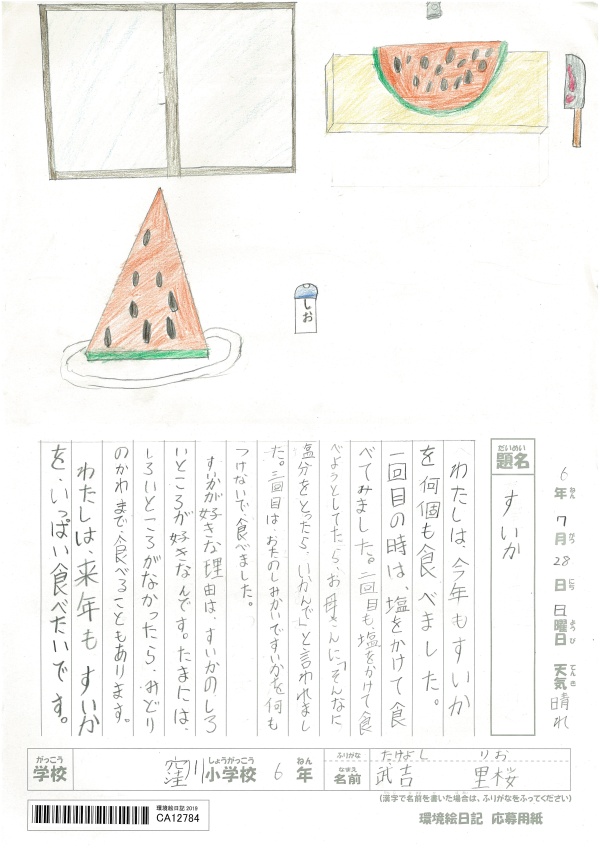 しお
6年ねん 7月がつ 28日にち 日曜日ようび 天気てんき 晴れ
だいめい
題名
すいか
わたしは、今年もすいか
を何個も食べました。
一回目の時は、塩をかけて食
べてみました。二回目も、塩をかけて食
べようとしてたら、お母さんに、「そんなに
塩分をとったら、いかんで」と言われまし
た。三回目は、おたのしみかいですいかを何も
つけないで、食べました。
すいかが好きな理由は、すいかのしろ
いところが好きなんです。たまには、
しろいところがなかったら、みどり
のかわまで、食べることもあります。
わたしは、来年も すいか
を、いっぱい食べたいです。
がっこう
学校
窪川
しょうがっこう
小学校
6
ねん
年
ふりがな
たけよし りお
なまえ
名前
武吉 里桜
(漢字で名前を書いた場合は、ふりがなをふってください)
環境絵日記 2019
CA12784
環境絵日記 応募用紙